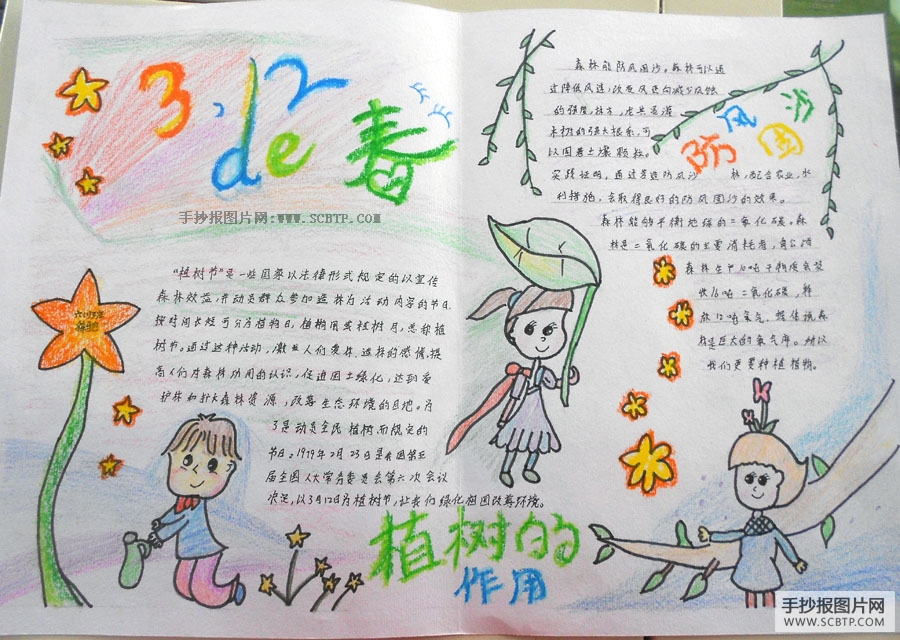 3.12
de 春
手抄报图片网:www.SCBTP.com
"植树节"是一些国家以法律形式规定的以宣传
森林效益,并动员群众参加造林为活动内容的节日.
按时间长短可分为植树日,植树周或植树月,总称植
树节。通过这种活动,激发人们爱林、造林的感情,提
高人们对森林功用的认识,促进国土绿化,达到爱
护林和扩大森林资源,改善生态环境的目地。为
了是动员全民植树而规定的
节日。1979年2月23日,我国第五
届全国人大常务委员会第六次会议
决定,以3月12日为植树节,让我们绿化祖国改善环境。
六(1)3年
森林能防风固沙。森林可以通
过降低风速,改变风向减少风蚀
的强度,林下
木树的强大根系,可
以固着土壤颗粒。
防风固沙
实践证明,通过营造防风沙 林,配合农业,水
利措施,会取得良好的防风固沙的效果。
森林能够平衡地球的二氧化碳。森
林是二氧化碳的主要消耗者,每公顷
森林生产10吨干物质会吸
收16吨二氧化碳,释
放12吨氧气。据传说森
林是巨大的氧气库。所以
我们更要种植植物。
植树的
作用
手抄报图片网
WWW.SCBTP.COM